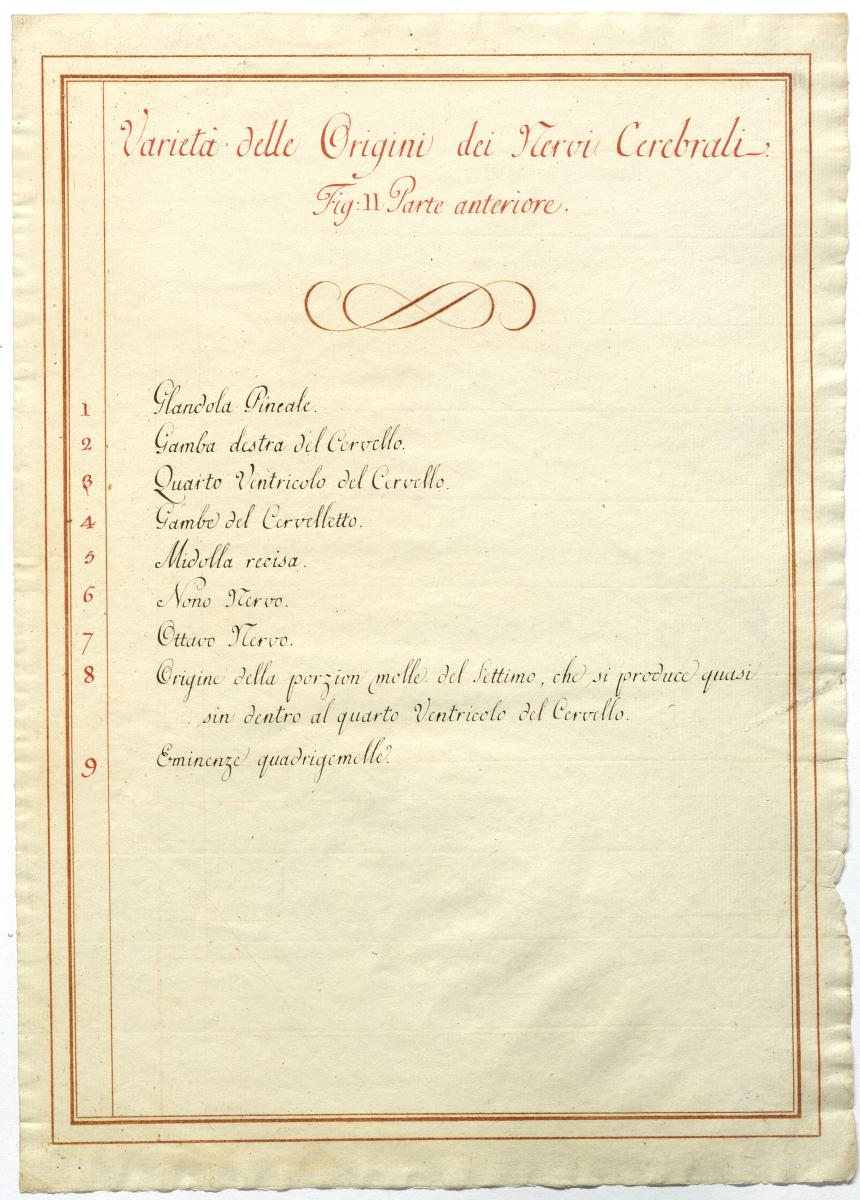 Varietà delle Origini dei Nervi Cerebrali.
Fig: II. Parte anteriore.
1 Glandola Pineale.
2 Gamba destra del Cervello.
3 Quarto Ventricolo del Cervello.
4 Gambe del Cervelletto.
5 Midolla recisa.
6 Nono Nervo.
7 Ottavo Nervo.
8 Origine della porzion molle del Settimo, che si produce quasi
sin dentro al quarto Ventricolo del Cervello.
9 Eminenze quadrigemelle.